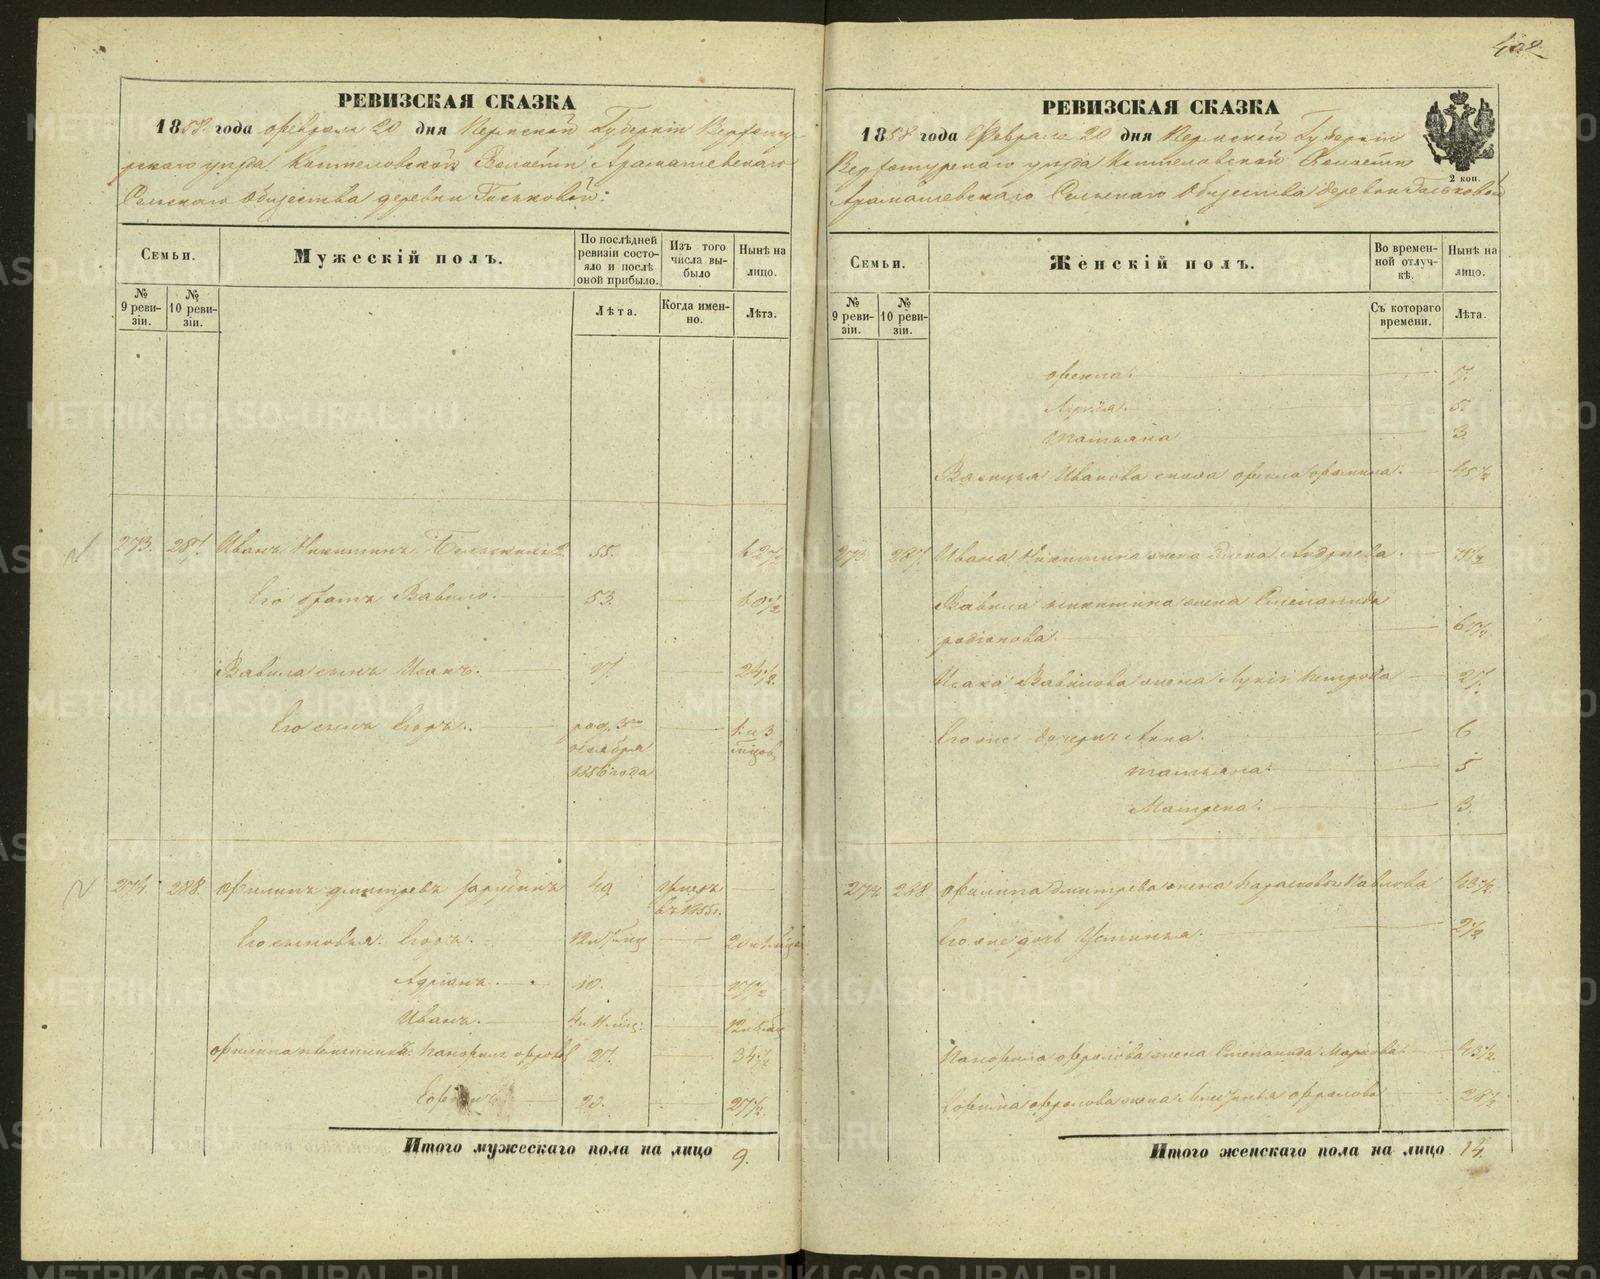 402
РЕВИЗСКАЯ СКАЗКА
1858 года февраля 20 дня Пермской Губерніи Верхоту-
рскаго уезда Коптеловской Волости Арамашевскаго
Сельскаго общества деревни Гостьковой:
Семьи.
Мужескій полъ.
По послѣдней ревизіи состо-яло и послѣ оной прибыло.
Изъ того числа вы-было
Нынѣ на лицо.
№ 9 реви-зіи.
№ 10 реви-зіи.
Лѣта.
Когда имен-но.
Лѣта.
273. 287. Иванъ Никитинъ 55. 62 1/2
Его братъ Вавило. 53. 60 1/2
Вавила сынъ Исакъ. 17. 24 1/2
Его сынъ Егоръ. род. 3го 1 и 3
октября мѣсяцов
1856 года
274 288 Филипъ Дмитревъ 49 умеръ
въ 1855 г.
Его сыновья: Егоръ.
Адріанъ. 10. 17 1/2
Иванъ.
Филипа племянники: Панфилъ Фролов 27. 34 1/2
Ефимъ 20. 27 1/2
Итого мужескаго пола на лицо 9.
РЕВИЗСКАЯ СКАЗКА
1858 года Февраля 20 дня Пермской Губерніи
Верхотурскаго уезда Коптеловской Волости
Арамашевскаго Сельскаго Общества деревни Гостьковой
2 коп.
Семьи.
Женскій полъ.
Во времен-ной отлуч-кѣ.
Нынѣ на лицо.
№ 9 реви-зіи.
№ 10 реви-зіи.
Съ котораго времени.
Лѣта.
Фекла. 7.
Лукія. 5.
Татьяна 3
Иванова Фекла Фомина. 45 1/2
273. 287. Ивана Никитина жена Елена Андреева.
Вавила Никитина жена Степанида
родіонова. 67 1/2
Исака Вавилова жена Лукія Петрова 27.
Его же дочери Анна. 6
татьяна. 5
Матрена. 3.
274 288 Филипа Дмитрева жена Парасковья Павлова 43 1/2
Его же дочь Устинья. 2 1/2
Панфила Фролова жена Степанида Маркова 43 1/2
Ефима Фролова жена Фролова 28 1/2
Итого женскаго пола на лицо 14.
METRIKI.GASO-URAL.RU